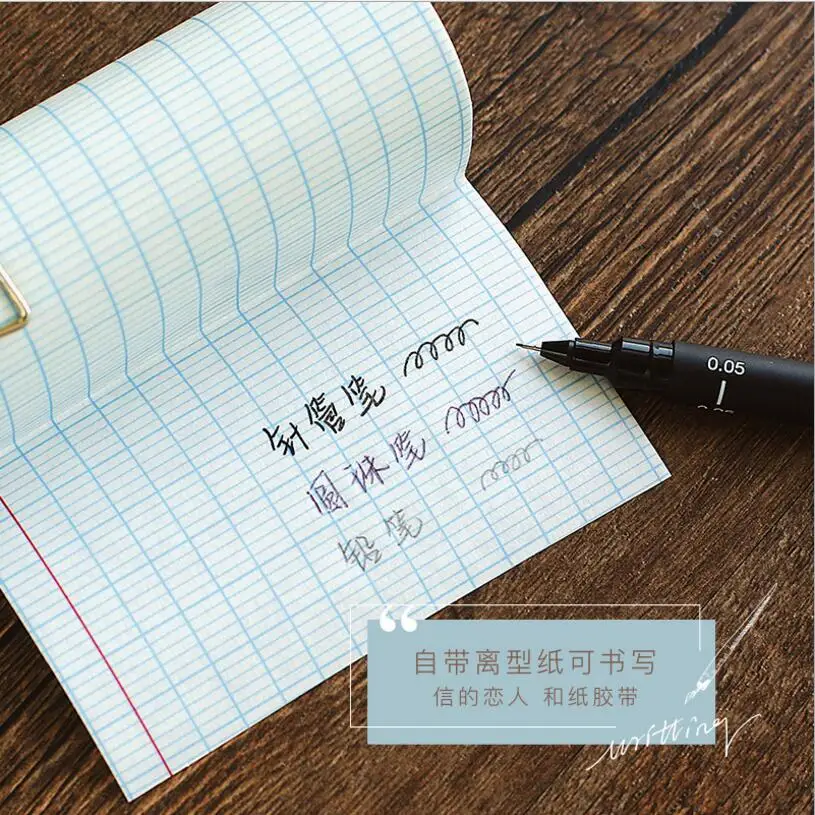 针管笔
圆珠笔
铅笔
0.05
自带离型纸可书写
信的恋人 和纸胶带
writting